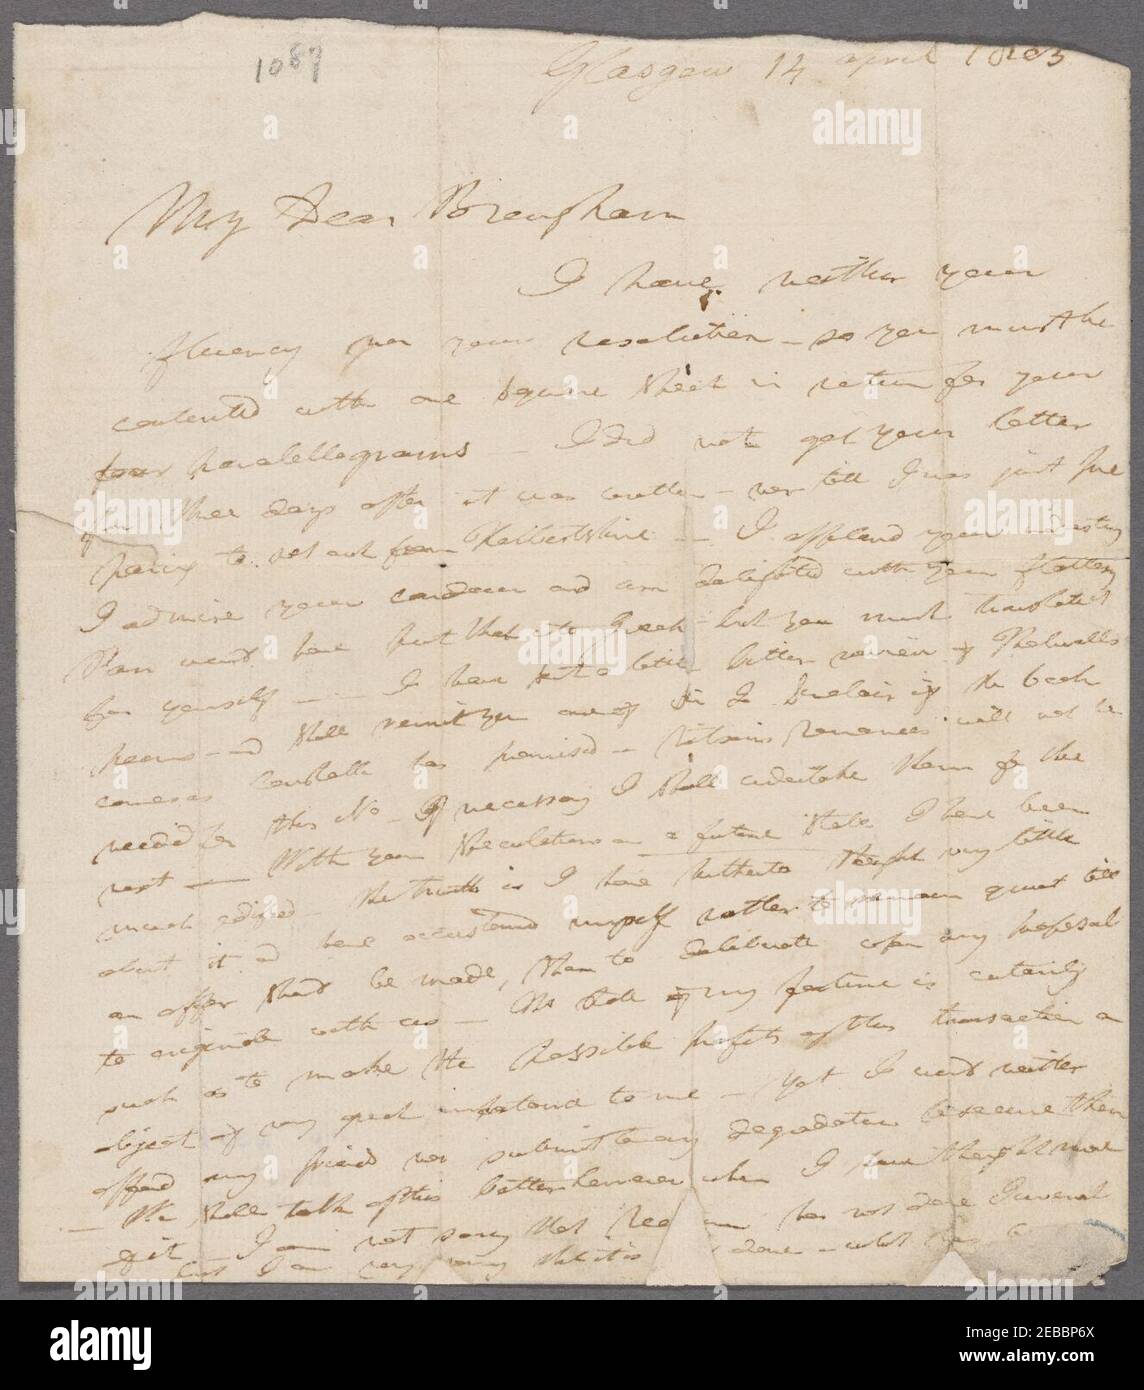 1087
Glasgow 14 april 1803
My Dear Brougham
I have neither your
fluency nor your resolution - so you must be
contented with one square sheet in return for your
four parallellograms - I did not get your letter
for three days after it was written - nor till I was just pre
paring to set out from Herbertshire - I applaud your
I admire your candour and am delighted with your flattery
Parr would have put that into Greek - but you must translate it
for yourself - I have a little better review of Thelwall's
poems - and shall remit you one of Sir J. Sinclair if the book
comes as Constable has promised - Ritson's Romances will not be
needed for this No - If necessary I shall undertake them for the
next - With your speculations on a future state I have been
much edified - the truth is I have hitherto thought very little
about it and have accustomed myself rather to remain quiet till
an offer shall be made, than to deliberate upon any proposal
to originate with us - The state of my fortune is certainly
such as to make the possible profits of this transaction an
object of very great importance to me - Yet I would neither
offend my friends nor submit to any degradation to secure them
- We shall talk of this better however when I have thought more
of it - I am not sorry that has not done
but I am very sorry that it is done - what
alamy
Image ID: 2EBBP6X
www.alamy.com